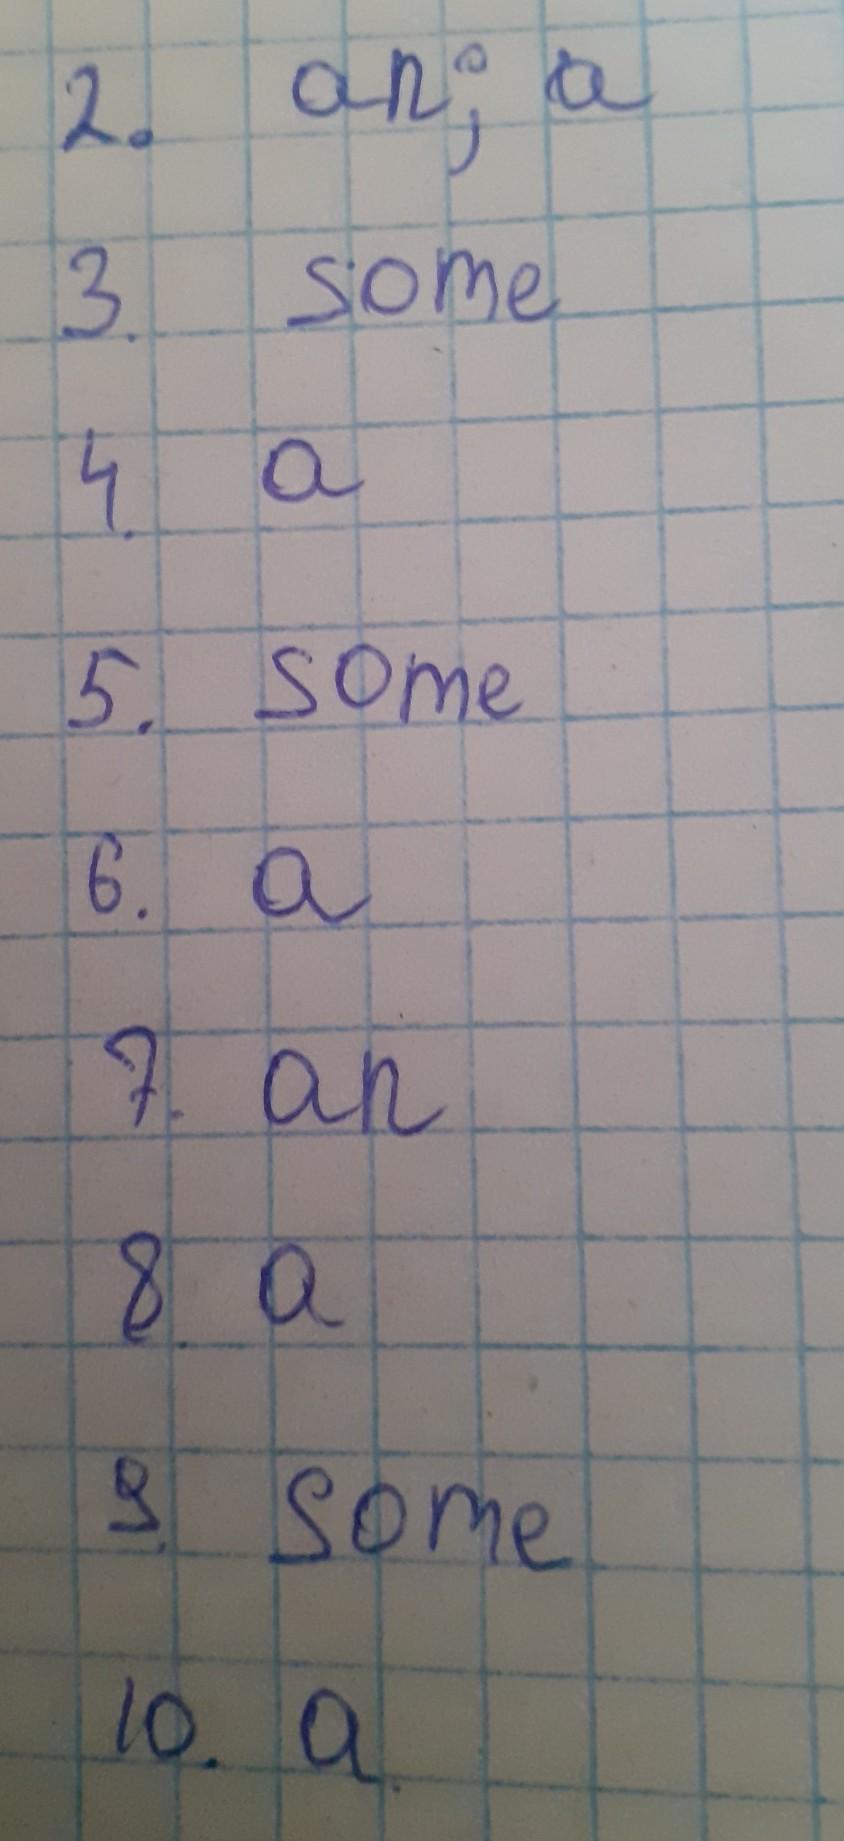 2. an; a
3. some
4. a
5. some
6. a
7. an
8. a
9. some
10. a